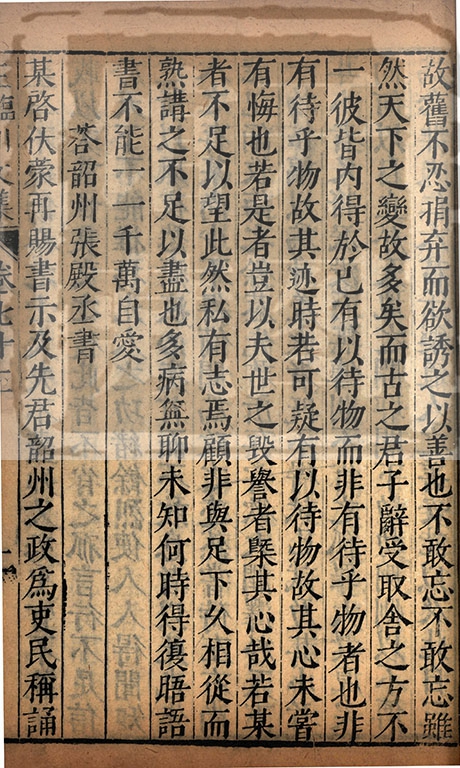 故舊不忍捐弃而欲誘之以善也不敢忘不敢忘雖
然天下之變故多矣而古之君子辭受取舍之方不
一彼皆内得於已有以待物而非有待乎物者也非
有待乎物故其迹時若可疑有以待物故其心未嘗
有悔也若是者豈以夫世之毁譽者槩其心哉若某
者不足以望此然私有志焉顧非與足下久相從而
熟講之不足以盡也多病無聊未知何時得復晤語
書不能一一千萬自愛
荅韶州張殿丞書
某啓伏蒙再賜書示及先君韶州之政爲吏民稱誦
臨川文集 卷七十三